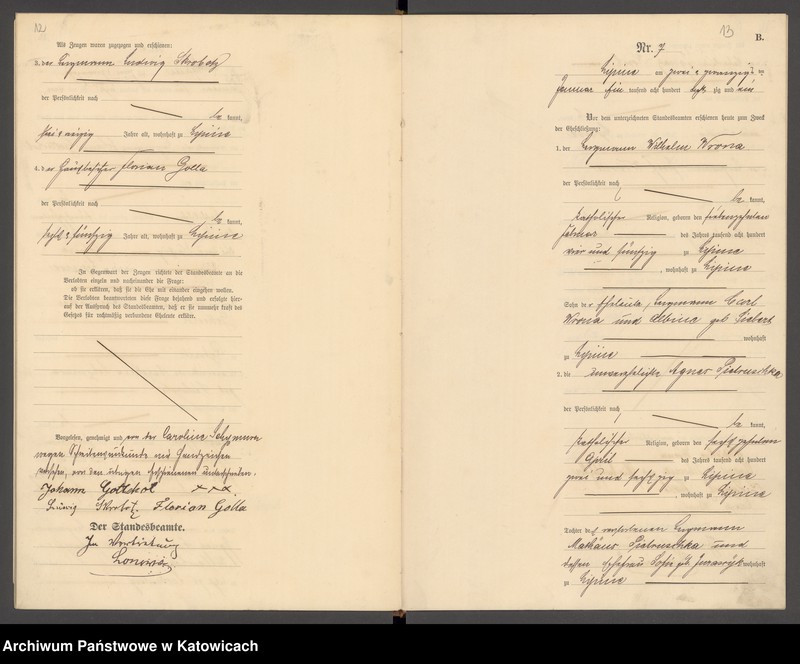 12
Als Zeugen waren zugezogen und erschienen:
3. der Bergmann Ludwig Skrobotz
der Persönlichkeit nach
be kannt,
Jahre alt, wohnhaft zu Lipine
4. der Hausbesitzer Florian Golla
der Persönlichkeit nach
be kannt,
sechs & fünfzig Jahre alt, wohnhaft zu Lipine
In Gegenwart der Zeugen richtete der Standesbeamte an die
Verlobten einzeln und nacheinander die Frage:
ob sie erklären, daß sie die Ehe mit einander eingehen wollen.
Die Verlobten beantworteten diese Frage bejahend und erfolgte hier-
auf der Ausspruch des Standesbeamten, daß er sie nunmehr kraft des
Gesetzes für rechtmäßig verbundene Eheleute erkläre.
Vorgelesen, genehmigt und von der Caroline
wegen Schreibensunkunde mit Handzeichen
versehen, von den übrigen Erschienenen unterschrieben.
Johann +++
Ludwig Florian Golla
Der Standesbeamte.
In Vertretung
13
B.
Nr. 7
Lipine am zwei & zwanzigsten
Januar ein tausend acht hundert acht zig und ein
Vor dem unterzeichneten Standesbeamten erschienen heute zum Zweck
der Eheschließung:
1. der Bergmann Wilhelm Wrona
der Persönlichkeit nach
be kannt,
katholischer Religion, geboren den siebenzehnten
Februar des Jahres tausend acht hundert
vier und fünfzig zu Lipine
, wohnhaft zu Lipine
Sohn der Eheleute, Bergmann Carl
Wrona und Albine geb. Siebert
wohnhaft
zu Lipine
2. die unverehelichte Agnes Pietruschka
der Persönlichkeit nach
be kannt,
katholischer Religion, geboren den sechszehnten
April des Jahres tausend acht hundert
zwei und sechszig zu Lipine
, wohnhaft zu Lipine
Tochter des verstorbenen Bergmann
Mathäus Pietruschka und
dessen Ehefrau Sofie geb. wohnhaft
zu Lipine
Archiwum Państwowe w Katowicach